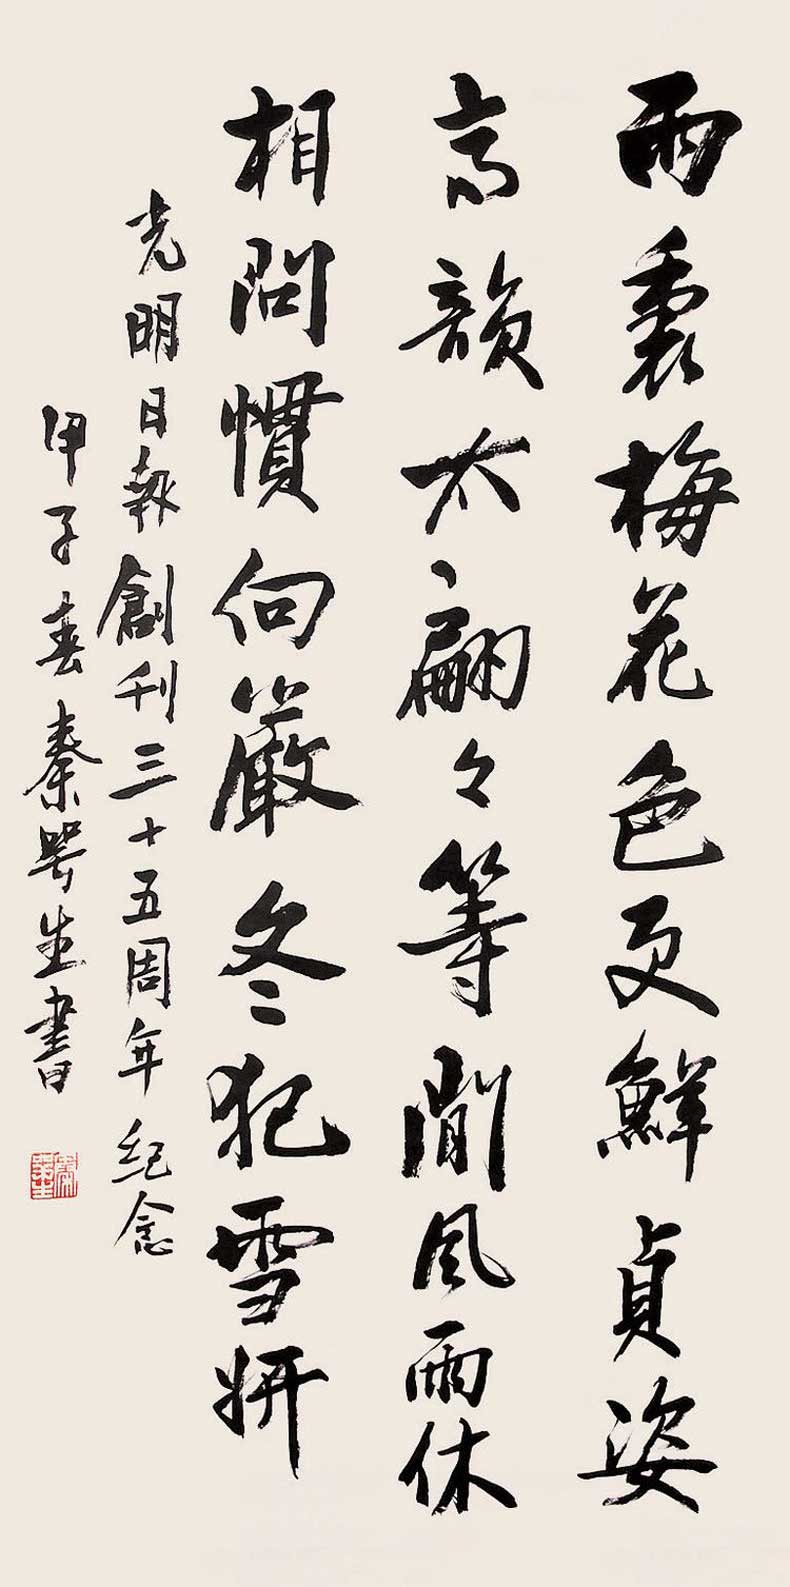 雨裏梅花色更鮮貞姿
高韻太翩々等閒風雨休
相問慣向嚴冬犯雪妍
光明日報創刊三十五周年紀念
甲子春秦咢生書